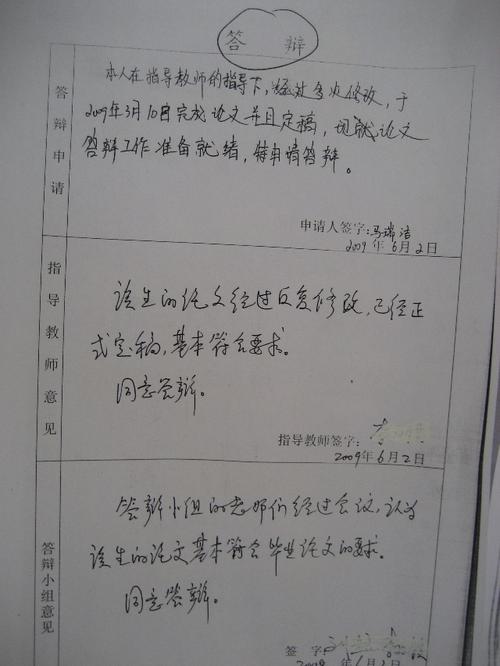 答 辩
答辩申请
本人在指导教师的指导下，经过多次修改，于
2009年5月10日完成论文并且定稿，现就论文
答辩工作准备就绪，特申请答辩。
申请人签字：马瑞洁
2009年6月2日
指导教师意见
该生的论文经过反复修改，已经正
式定稿，基本符合要求。
同意答辩。
指导教师签字：
2009年6月2日
答辩小组意见
答辩小组的老师们经过会议，认为
该生的论文基本符合毕业论文的要求。
同意答辩。
签 字：